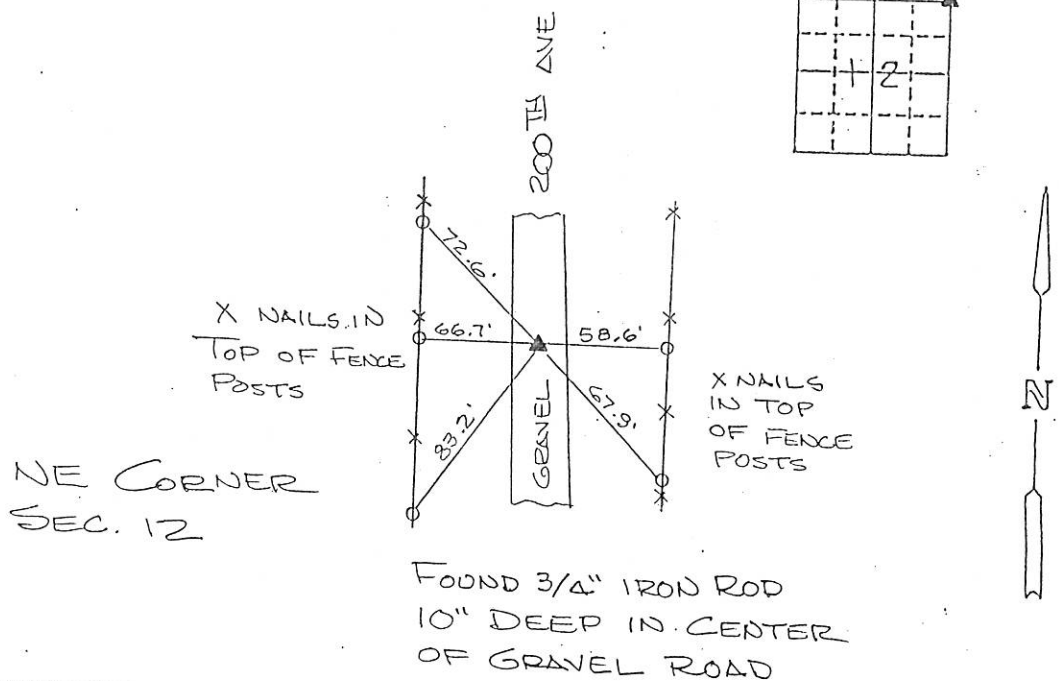 12
200TH AVE
72.6'
X NAILS IN
TOP OF FENCE
POSTS
66.7'
58.6'
83.2'
GRAVEL
67.9'
X NAILS
IN TOP
OF FENCE
POSTS
N
NE CORNER
SEC. 12
FOUND 3/4" IRON ROD
10" DEEP IN CENTER
OF GRAVEL ROAD